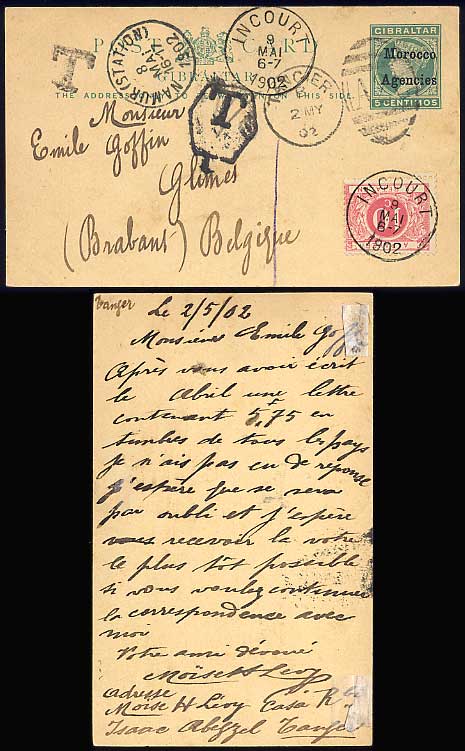 POST CARD
GIBRALTAR
THE ADDRESS ON THIS SIDE
GIBRALTAR
Morocco
Agencies
5 CENTIMOS
T
NAMUR (STATION)
8
MAI
1902
INCOURT
9
MAI
6-7
1902
TANGIER
2 MY
02
A
T
Monsieur
Emile Goffin
Glimes
(Brabant) Belgique
INCOURT
9
MAI
6-7
1902
10
Tanger
Le 2/5/02
Monsieur Emile Goffin
Après vous avoir écrit
le Abril une lettre
contenant 5,75 en
timbres de tous les pays
je n'ais pas eu de reponse
j'espère que se sera
par oubli et j'espère
recevoir la votre
le plus tôt possible
si vous voulez continuer
la correspondence avec
moi
Votre ami dévoué
Moïse H Levy
adresse
Moïse H Lévy Casa R
Isaac Abezzel Tanger